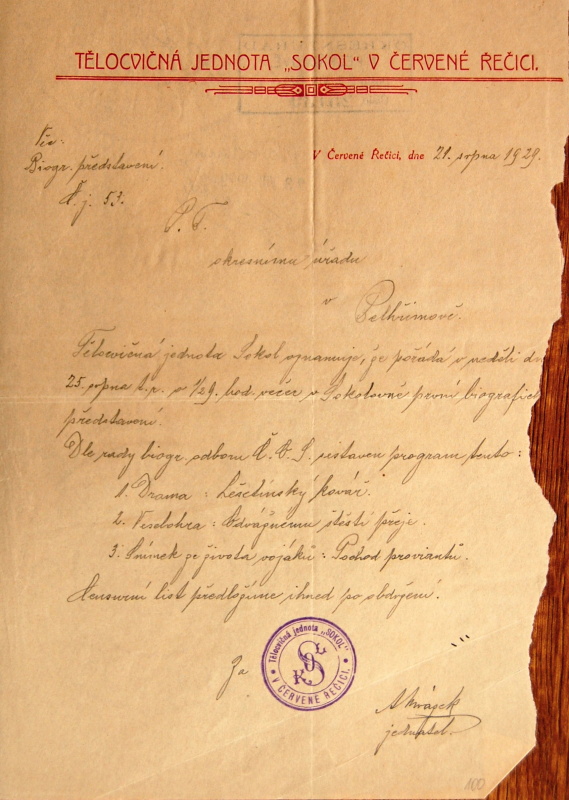 TĚLOCVIČNÁ JEDNOTA „SOKOL" V ČERVENÉ ŘEČICI.
Věc:
Biogr. představení.
V Červené Řečici, dne 21. srpna 1929.
Č. j. 53.
P. T.
okresnímu úřadu
v
Pelhřimově.
Tělocvičná jednota Sokol oznamuje, že pořádá v neděli dn
25 srpna t. r. o ½9. hod. večer v Sokolovně první biografick
představení.
Dle rady biogr. odboru Č. O. S. sestaven program tento:
1. Drama: Lešetínský kovář.
2. Veselohra: Odvážnému štěstí přeje.
3. Snímek ze života vojáků: Pochod proviantů.
Censurní list předložíme ihned po obdržení.
Za
Tělocvičná jednota „SOKOL"
V ČERVENÉ ŘEČICI.
SOKOL
jednatel.
100